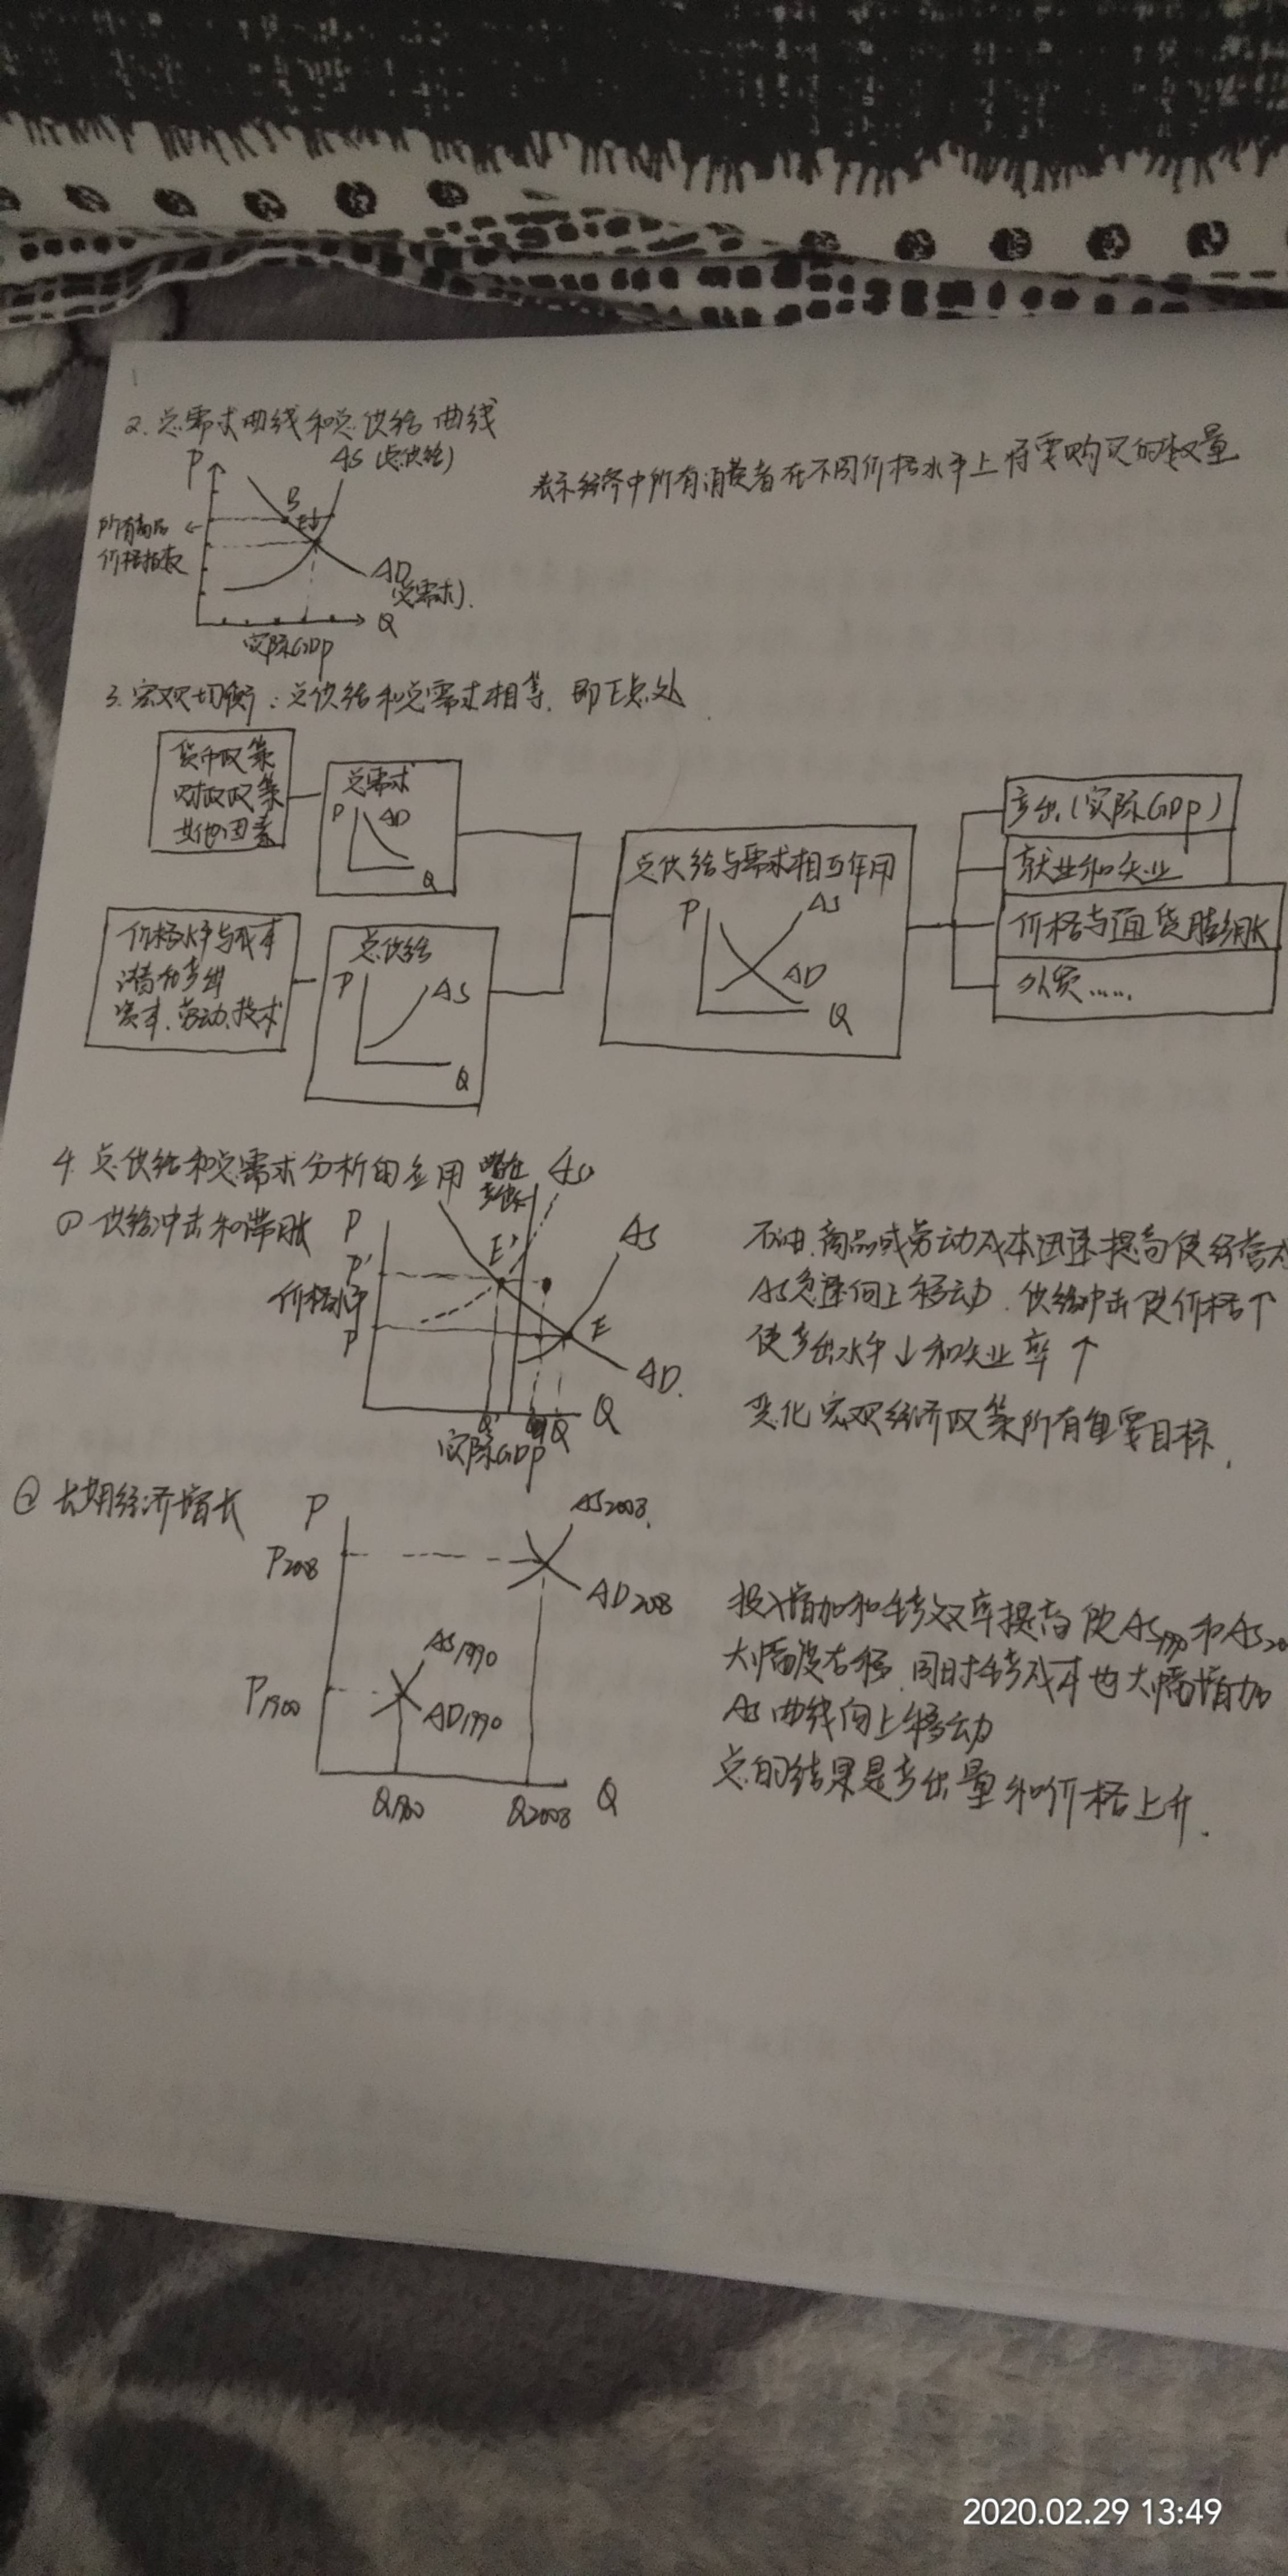 2. 总需求曲线和总供给曲线
表示经济中所有消费者在不同价格水平上将要购买的数量
P
AS (总供给)
B
E
所有商品
价格指数
AD
(总需求).
Q
实际GDP
3. 宏观均衡：总供给和总需求相等，即E点处.
货币政策
财政政策
其他因素
总需求
P
AD
Q
价格水平与成本
潜在产出
资本、劳动、技术
总供给
P
AS
Q
总供给与需求相互作用
P
AS
AD
Q
产出(实际GDP)
就业和失业
价格与通货膨胀
外贸……
4. 总供给和总需求分析的应用
① 供给冲击和滞胀
潜在
产出
AS
P
P'
价格水平
P
E'
AS
E
AD.
Q'
Q
Q
实际GDP
石油、商品或劳动成本迅速提高使经营
AS急速向上移动. 供给冲击使价格↑
使产出水平↓和失业率↑
恶化宏观经济政策所有重要目标.
② 长期经济增长
P
AS2008.
P2008
AD2008
AS1990
P1900
AD1990
Q1900
Q2008
Q
投入增加和生产效率提高使AS1990和AS20
大幅度右移. 同时生产成本也大幅增加
AS曲线向上移动
总的结果是产出量和价格上升.
2020.02.29 13:49